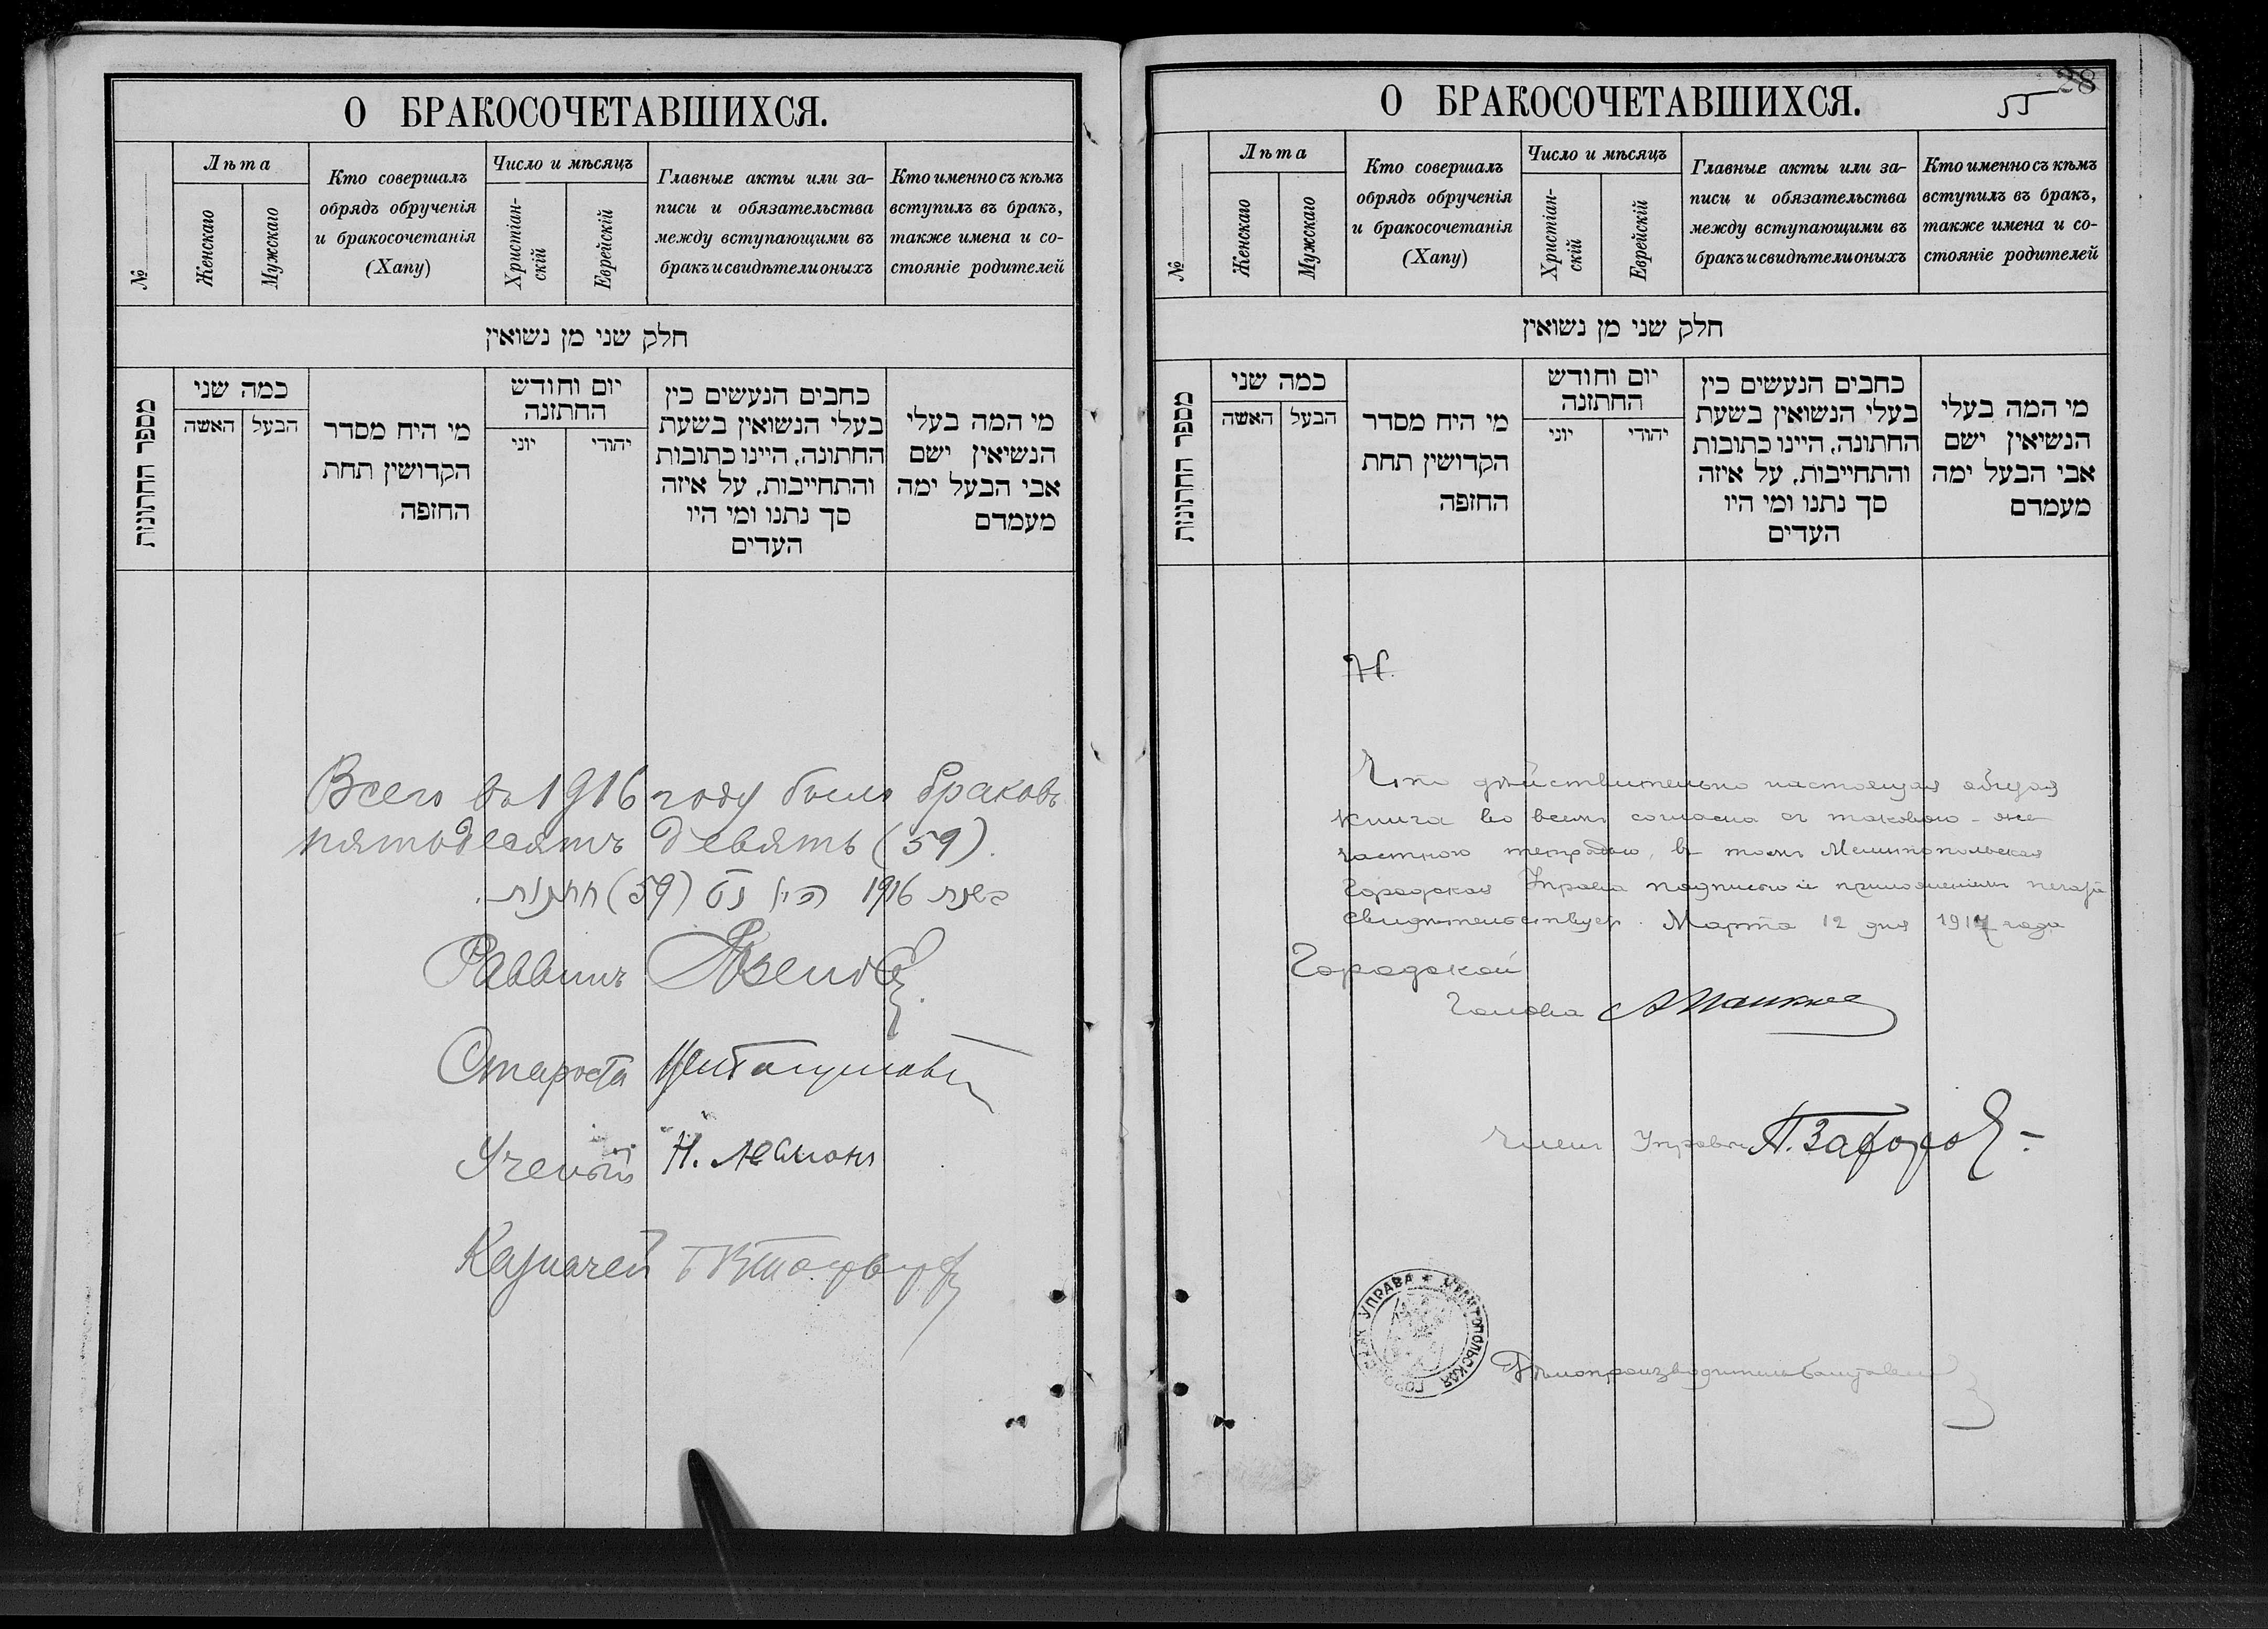 О БРАКОСОЧЕТАВШИХСЯ.
№
Лѣта
Женскаго
Мужскаго
Кто совершалъ
обрядъ обрученія
и бракосочетанія
(Хапу)
Число и мѣсяцъ
Христіан-
скій
Еврейскій
Главные акты или за-
писи и обязательства
между вступающими въ
бракъ и свидѣтели оныхъ
Кто именно съ кѣмъ
вступилъ въ бракъ,
также имена и со-
стояніе родителей
חלק שני מן נשואין
מספר החתונות
כמה שני
האשה
הבעל
מי היח מסדר
הקדושין תחת
החזפה
יום וחודש
החתזנה
יוני
יהודי
כחבים הנעשים כין
בעלי הנשואין בשעת
החתונה, היינו כתובות
והתחייבות, על איזה
סך נתנו ומי היו
העדים
מי המה בעלי
הנשיאין ישם
אבי הבעל ימה
מעמדם
Всего въ 1916 году было браковъ
пятьдесятъ девять (59).
בשנת 1916 היו נט (59) חתונות.
Раввинъ
Староста
Ученый Н.
Казначей
О БРАКОСОЧЕТАВШИХСЯ.
28
55
№
Лѣта
Женскаго
Мужскаго
Кто совершалъ
обрядъ обрученія
и бракосочетанія
(Хапу)
Число и мѣсяцъ
Христіан-
скій
Еврейскій
Главные акты или за-
писи и обязательства
между вступающими въ
бракъ и свидѣтели оныхъ
Кто именно съ кѣмъ
вступилъ въ бракъ,
также имена и со-
стояніе родителей
חלק שני מן נשואין
מספר החתונות
כמה שני
האשה
הבעל
מי היח מסדר
הקדושין תחת
החזפה
יום וחודש
החתזנה
יוני
יהודי
כחבים הנעשים כין
בעלי הנשואין בשעת
החתונה, היינו כתובות
והתחייבות, על איזה
סך נתנו ומי היו
העדים
מי המה בעלי
הנשיאין ישם
אבי הבעל ימה
מעמדם
Что дѣйствительно настоящая общая
книга во всемъ согласна съ таковою-же
частною тетрадью, въ томъ Мелитопольская
Городская Управа подписью и приложеніемъ печати
свидѣтельствуетъ. Марта 12 дня 1917 года
Городской
Голова
Членъ Управы П.
МЕЛИТОПОЛЬСКАЯ ГОРОДСКАЯ УПРАВА
Дѣлопроизводитель